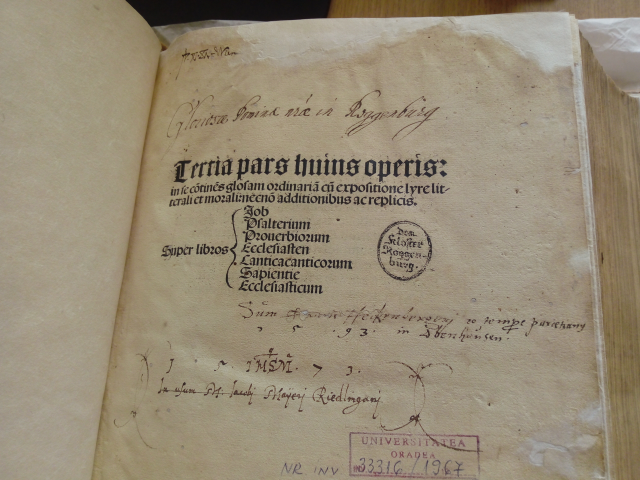 in Roggenburg
Tertia pars huius operis:
in se cōtinēs glosam ordinariā cū expositione lyre lit-
terali et morali: necnō additionibus ac replicis.
Super libros
Job
Psalterium
Prouerbiorum
Ecclesiasten
Canticacanticorum
Sapientie
Ecclesiasticum
Dem
Kloster
Roggen-
burg.
Sum
1 5 . 9 3 . in Ebenhausen.
1 . 5 . 7 3 .
In usum Jacobi Riedlingani
UNIVERSITATEA
ORADEA
NR INV 33316/1967